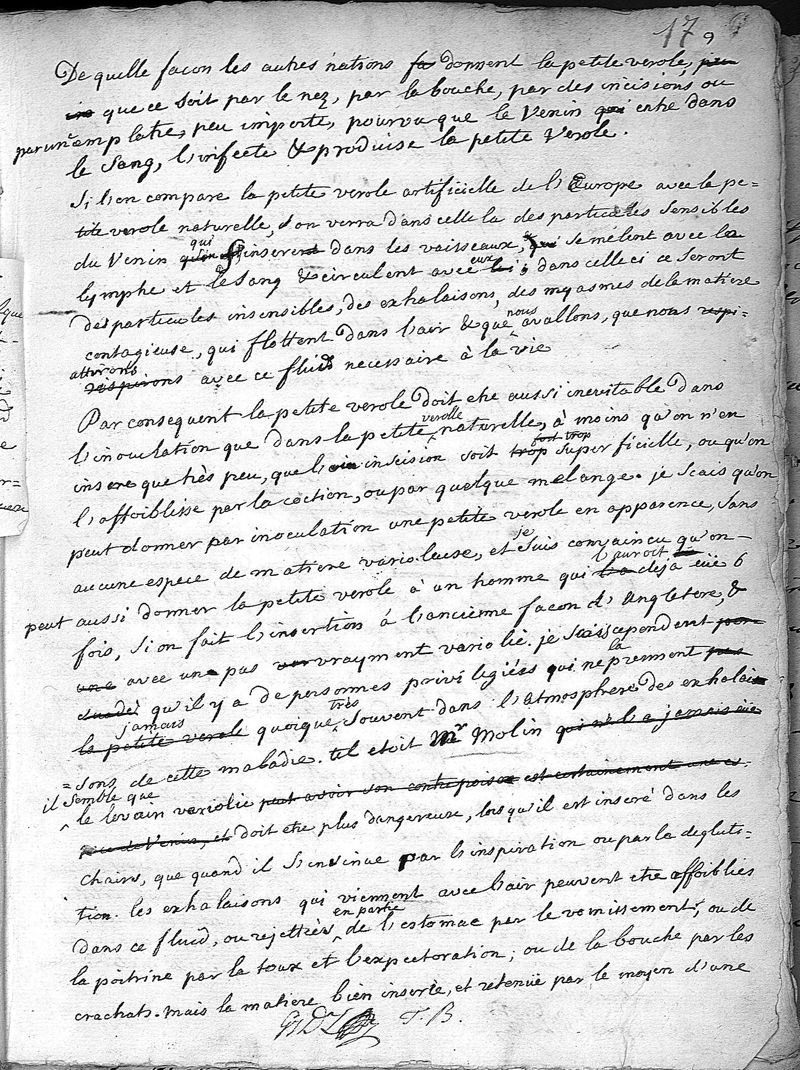 179
De quelle facon les autres nations donnent la petite verole,
que ce soit par le nez, par la bouche, par des incisions ou
par un emplatre, peu importe, pourvu que le Venin entre dans
le sang, l'infecte & produise la petite verole.
Si l'on compare la petite verole artificielle de l'Europe avec la pe-
tite verole naturelle, on verra dans celle la des particules sensibles
du Venin qui s'inserent dans les vaisseaux, se mêlent avec la
lymphe et le sang & circulent avec eux; dans celle ci ce seront
des particules insensibles, des exhalaisons, des myasmes de la matiere
contagieuse, qui flottent dans l'air & que nous avallons, que nous
attirons avec ce fluid necessaire à la vie
Par consequent la petite verole doit etre aussi inevitable dans
l'inoculation que dans la petite verolle naturelle, à moins qu'on n'en
insere que très peu, que l'inscision soit fort trop superficielle, ou qu'on
l'affoiblisse par la coction, ou par quelque melange. je scais qu'on
peut donner par inoculation une petite verole en apparence, sans
aucune espece de matiere varioleuse, et je suis convaincu qu'on
peut aussi donner la petite verole à un homme qui l'auroit deja eüe 6
fois, si on fait l'insertion à l'ancienne facon d'Angletere, &
avec un pus vrayment variolic. je scais cependent
qu'il y a de personnes privilegiées qui ne la prennent
jamais quoique très souvent dans l'atmosphere des exhalai
=sons de cette maladie. tel etoit Mr Molin qui ne l'a jamais eüe
il semble que
le levain variolic peut avoir son contrepoison est certainement une es-
pece de Venin, et doit etre plus dangereux, lorsqu'il est inseré dans les
chairs, que quand il s'insinue par l'inspiration ou par la degluti-
tion. les exhalaisons qui viennent avec l'air peuvent etre affoiblies
dans ce fluid, ou rejettées en partie de l'estomac par le vomissement, ou de
la poitrine par la toux et l'expectoration; ou de la bouche par les
crachats. mais la matiere bien inserée, et retenüe par le moyen d'une
T. B.